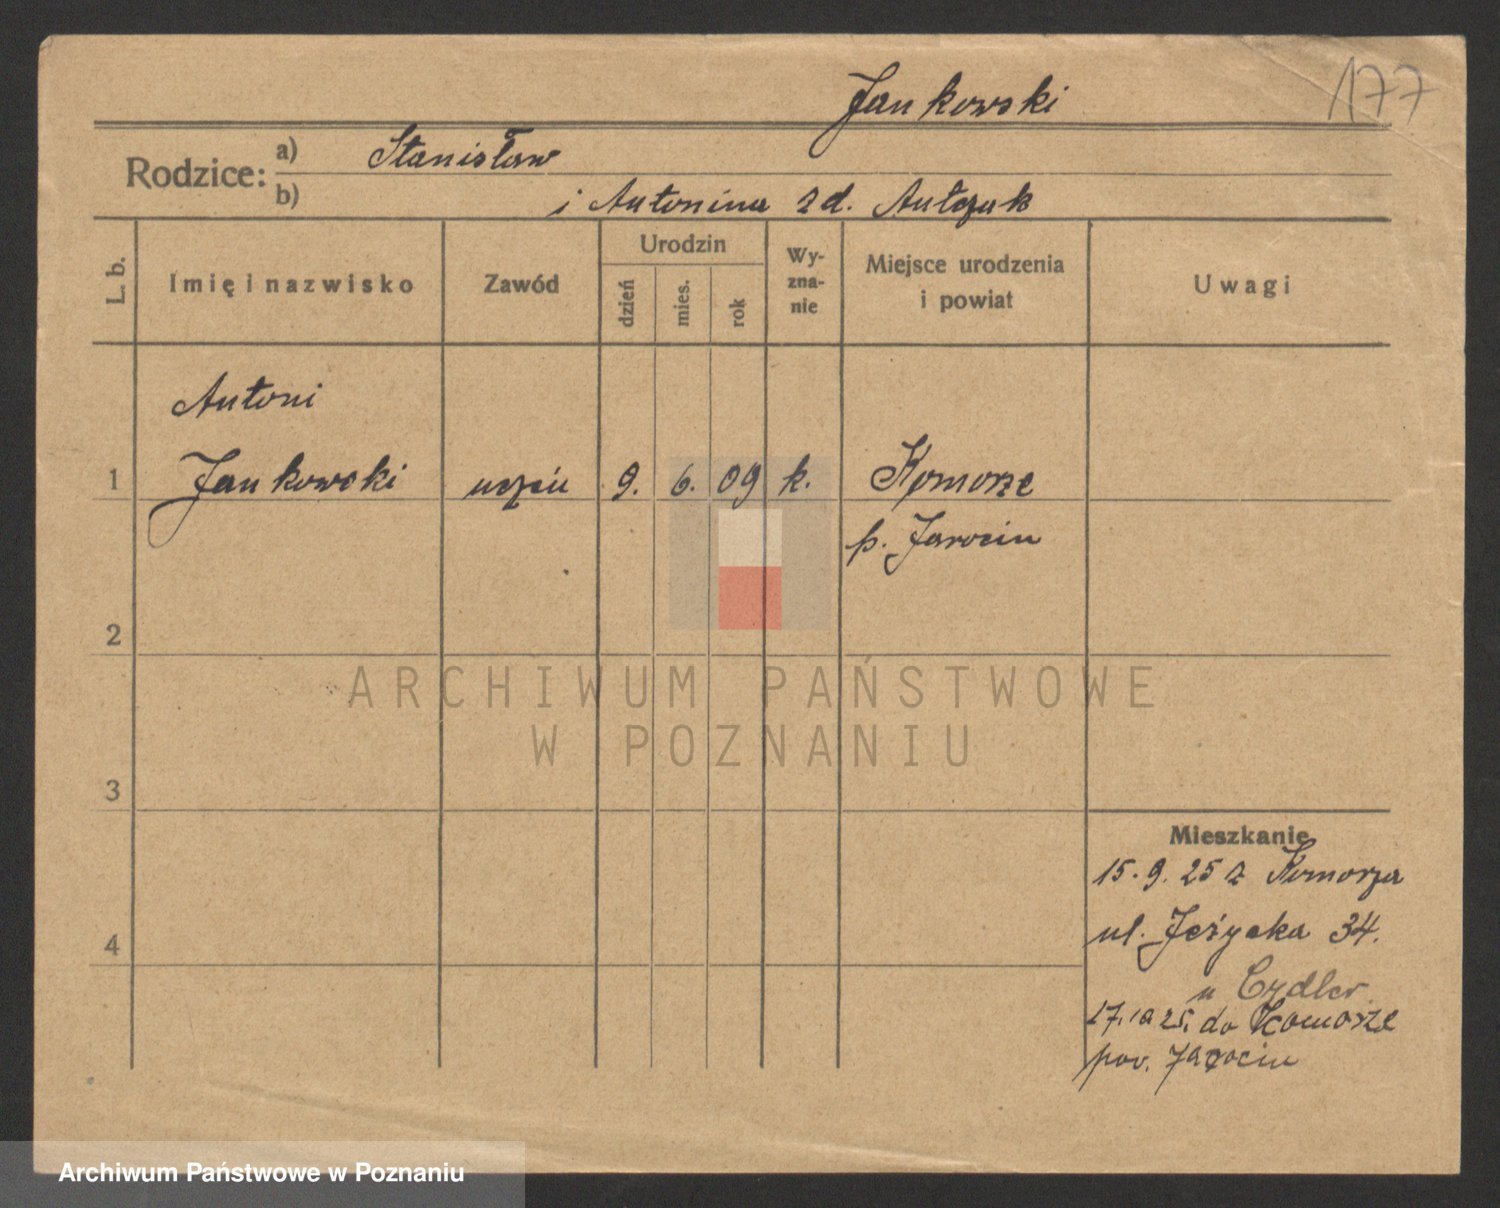 Jankowski
177
Rodzice: a) Stanisław
b) i Antonina zd. Antczak
L. b.
Imię i nazwisko
Zawód
Urodzin
dzień
mies.
rok
Wy-
zna-
nie
Miejsce urodzenia
i powiat
Uwagi
Antoni
1 Jankowski uczeń 9. 6. 09 k. Komorze
p. Jarocin
2
ARCHIWUM PAŃSTWOWE
W POZNANIU
3
Mieszkanie
15. 9. 25 z Komorza
4 ul. Jeżycka 34.
u
17. 10 25. do Komorze
pow. Jarocin
Archiwum Państwowe w Poznaniu